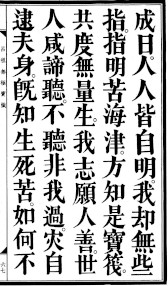 成日人人皆自明我却無些
指指明苦海津方知是寶筏
共度無量生我志願人善世
人咸諦聽不聽非我過灾自
逮夫身旣知生死苦如何不
六七